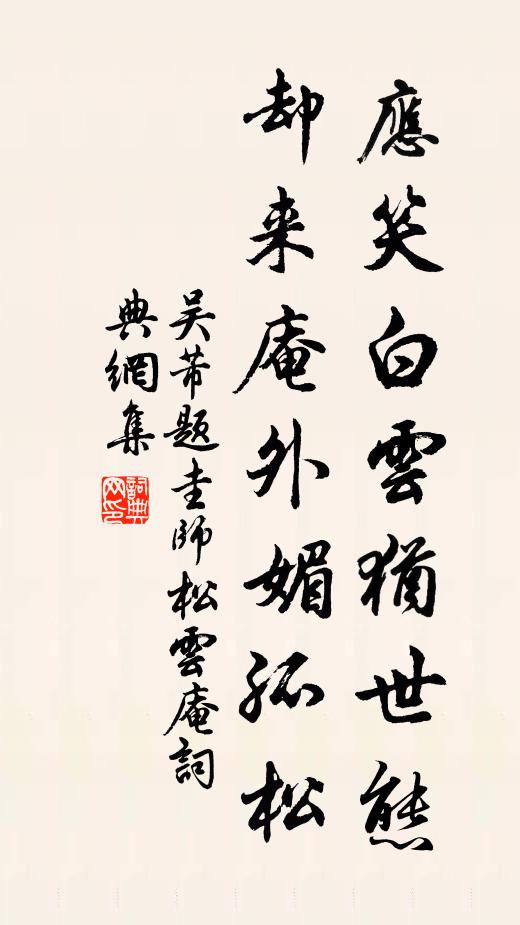 應笑白雲猶世態
却来庵外媚孤松
吴芾題圭師松雲庵詞
典網集
詞典
网印